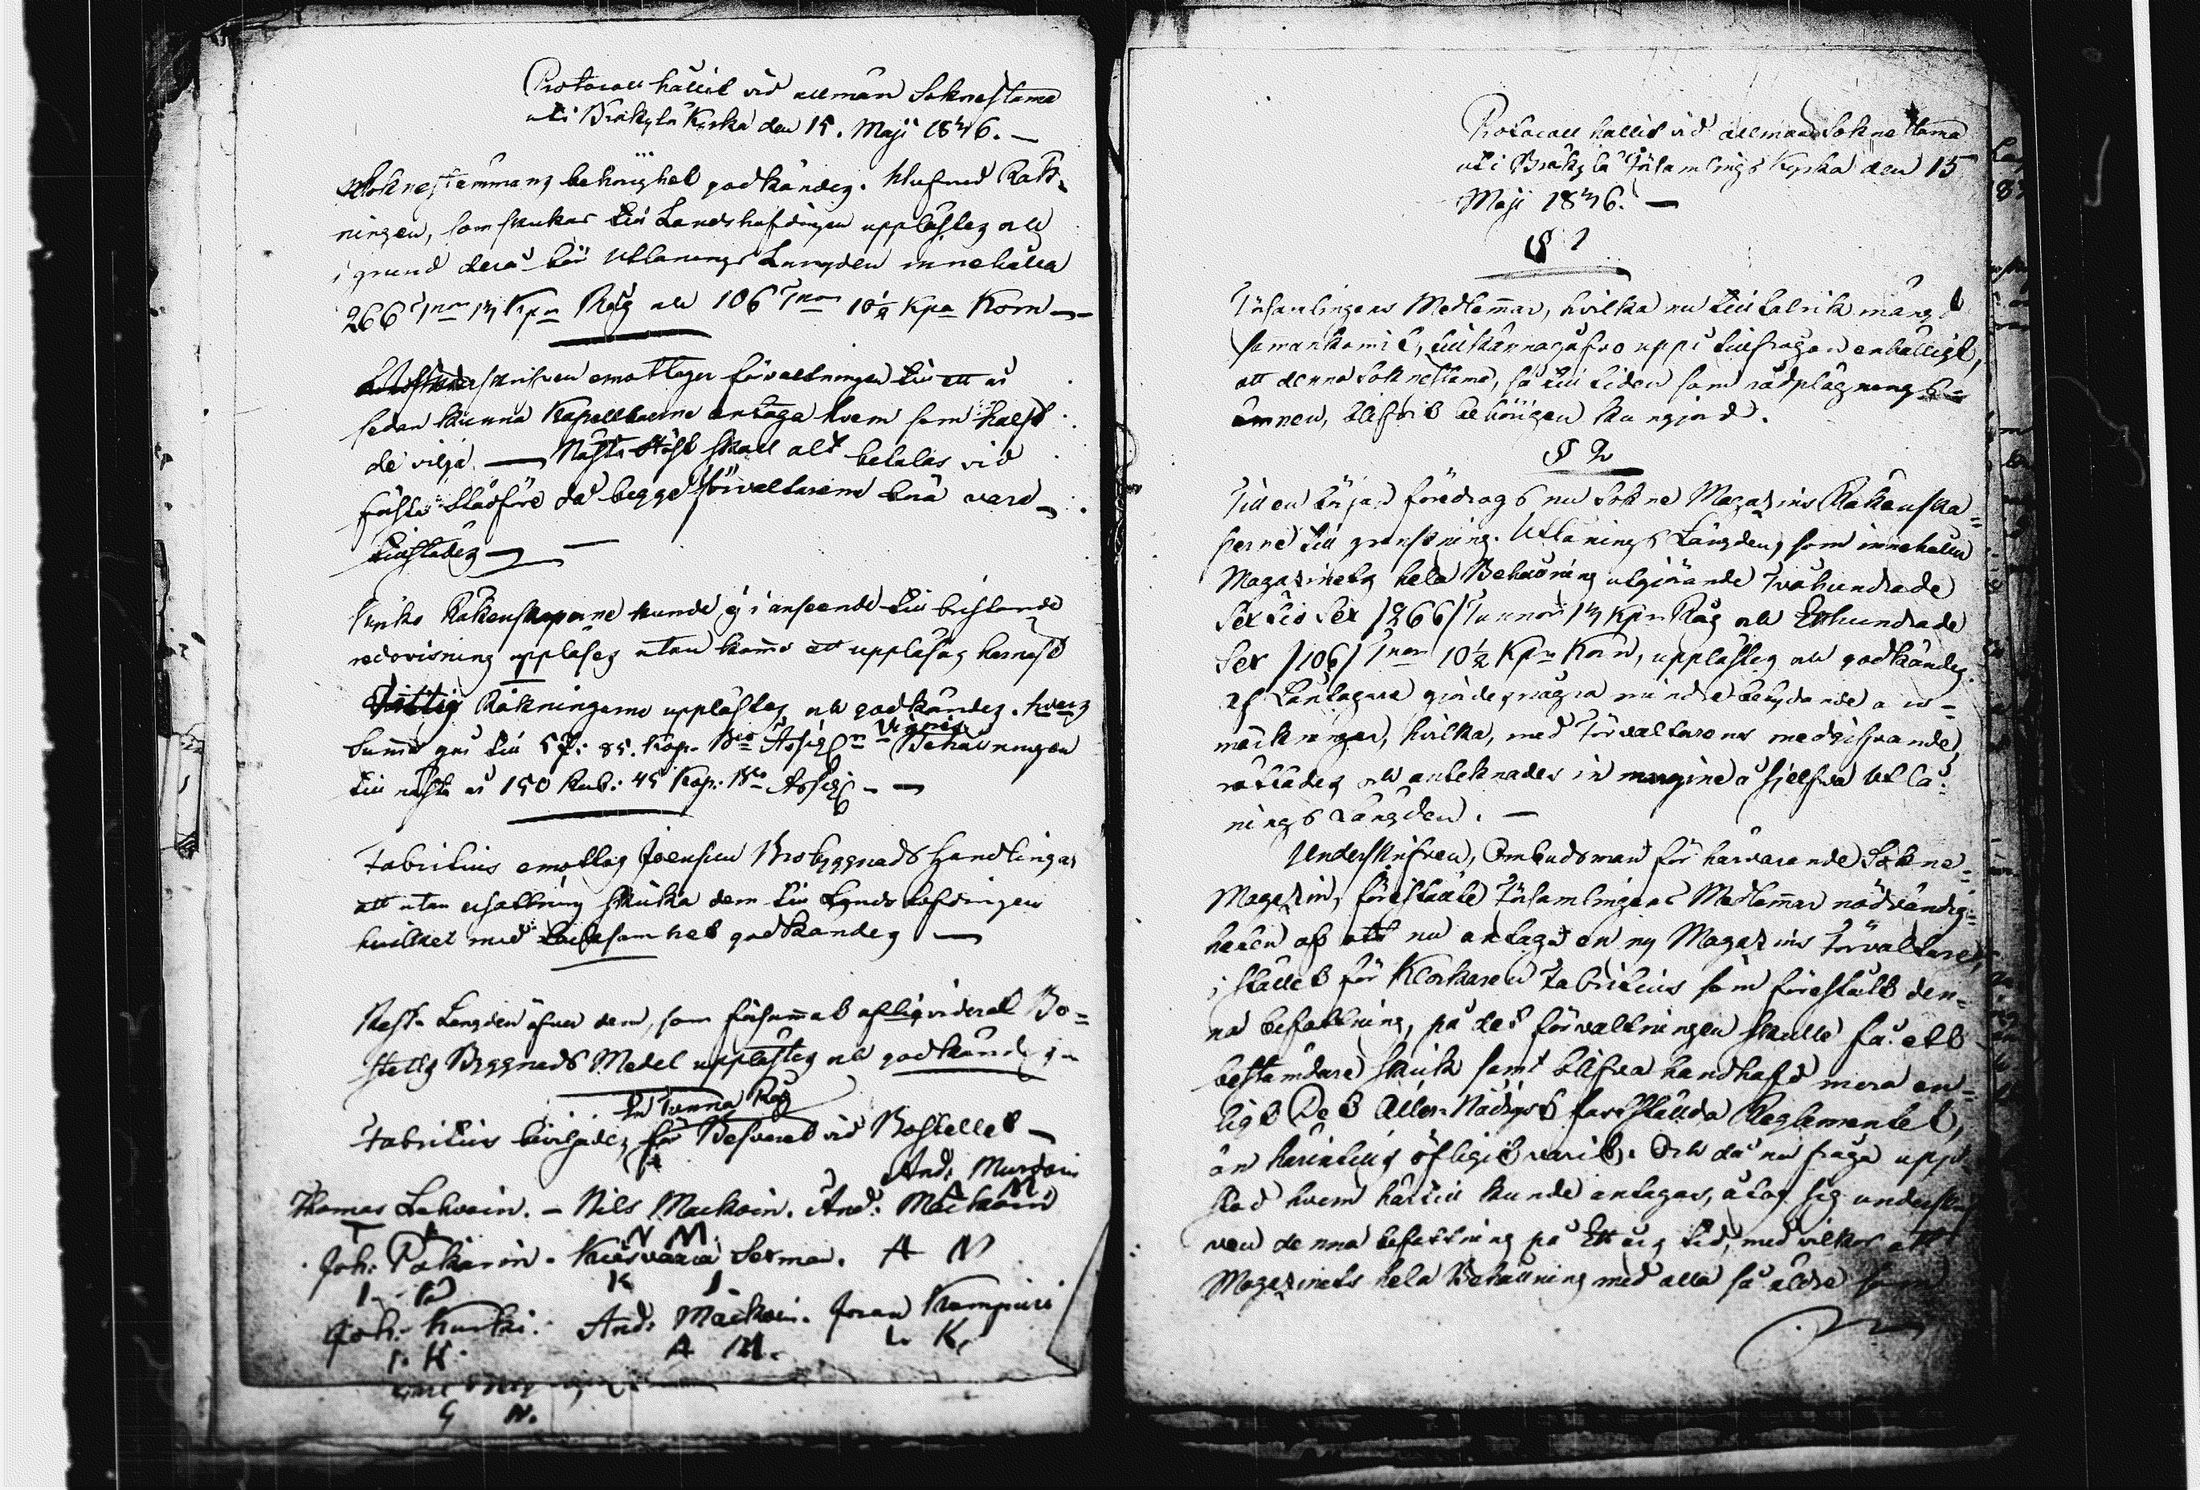 Protocoll hållit vid allmän Soknestäma
uti Bräkylä Kyrka den 15. Maji 1836. —
Soknestämmans behörighet godkändes. Hufvud Räk-
ningen, som skickas till Landshöfdingen upplästes och
i grund deraf bör Utlånings Längden innehålla
266 Tnor 14 Kpr Råg och 106 Tnor 10½ Kpr Korn —
skrifven emottager förvaltningen till ett år
sedan kunna Kapellboerne antaga hvem som helst
de vilja. — Nästa Höst skall allt betalas vid
första Slädföre då begge förvaltarene böra vara
tillstädes —
Kyrko Räkenskaperne kunde ej i anseende till bristande
redovisning uppläsas utan komma att uppläsas härnäst
Fattig Räkningarne upplästes och godkändes. hvars
Summa går till 57: 85. Kop. Bco Assign Behållningen
till nästa år 150 Rub: 45 Kop. Bco Assign —
Fabritius emottog Joensuu Brobyggnads Handlingar
att utan ersättning skicka dem till Landshöfdingen
hvilket med tacksamhet godkändes —
Rest Längden öfver dem, som försummat afliqviderat Bo=
ställs Byggnads Medel upplästes och godkändes —
En Tunna Råg
Fabritius beviljades för Besväret vid Bostellet —
And: Mur
Thomas Lahvain. — Nils Mackoin. And: Mackoin
T L N M A M
Joh: Pakarin. Sexman. A M
I. P K
Joh: Kurki. And: Mackoin. Joran Kampuri
I. K. A M. K.
G N.
Protocoll hållit vid allmän Soknestäma
uti Bräkylä Församlings Kyrka den 15
Maji 1836. —
§ 1
Församlingens Medlemmar, hvilka nu till talrik mängd
samankommit, tillkännagåfvo uppå tillfrågan enhälligt,
att denna Soknestäma, så till tiden som rådplägnings=
ämnen, blifvit behörigen kungjord.
§ 2
Till en början föredrogs nu Sokne Magazins Räkenska=
perne till granskning. Utlånings Längden, som innehåller
Magazinets hela Behållning utgörande Tvåhundrade
Sextio Sex /266/ Tunnor 14 Kpr Råg och Etthundrade
Sex /106/ Tnor 10½ Kpr Korn, upplästes och godkändes.
Af Låntagare gjordes några mindre betydande an=
märkningar, hvilka, med Förvaltarens medgifvande
rättades och antecknades in margine å sjelfva Utlå=
nings Längden. —
Underskrifven, Ombudsman för härvarande Sokne=
Magazin, föreställte Församlingens Medlemmar nödvändig=
heten af att nu antaga en ny Magazins Förvaltare
i stället för Klockaren Fabritius som förestått den=
na befattning, på det förvaltningen skulle få ett
bestämdare skick samt blifva handhafd mera en=
ligt Det Aller Nådigst fastställda Reglementet,
än härintills öfligit varit. Och då nu fråga upp=
stod hvem härtill kunde antagas, åtog sig underskrif
ven denna befattning på Ett års tid, med vilkor att
Magazinets hela Behållning med alla så äldre som